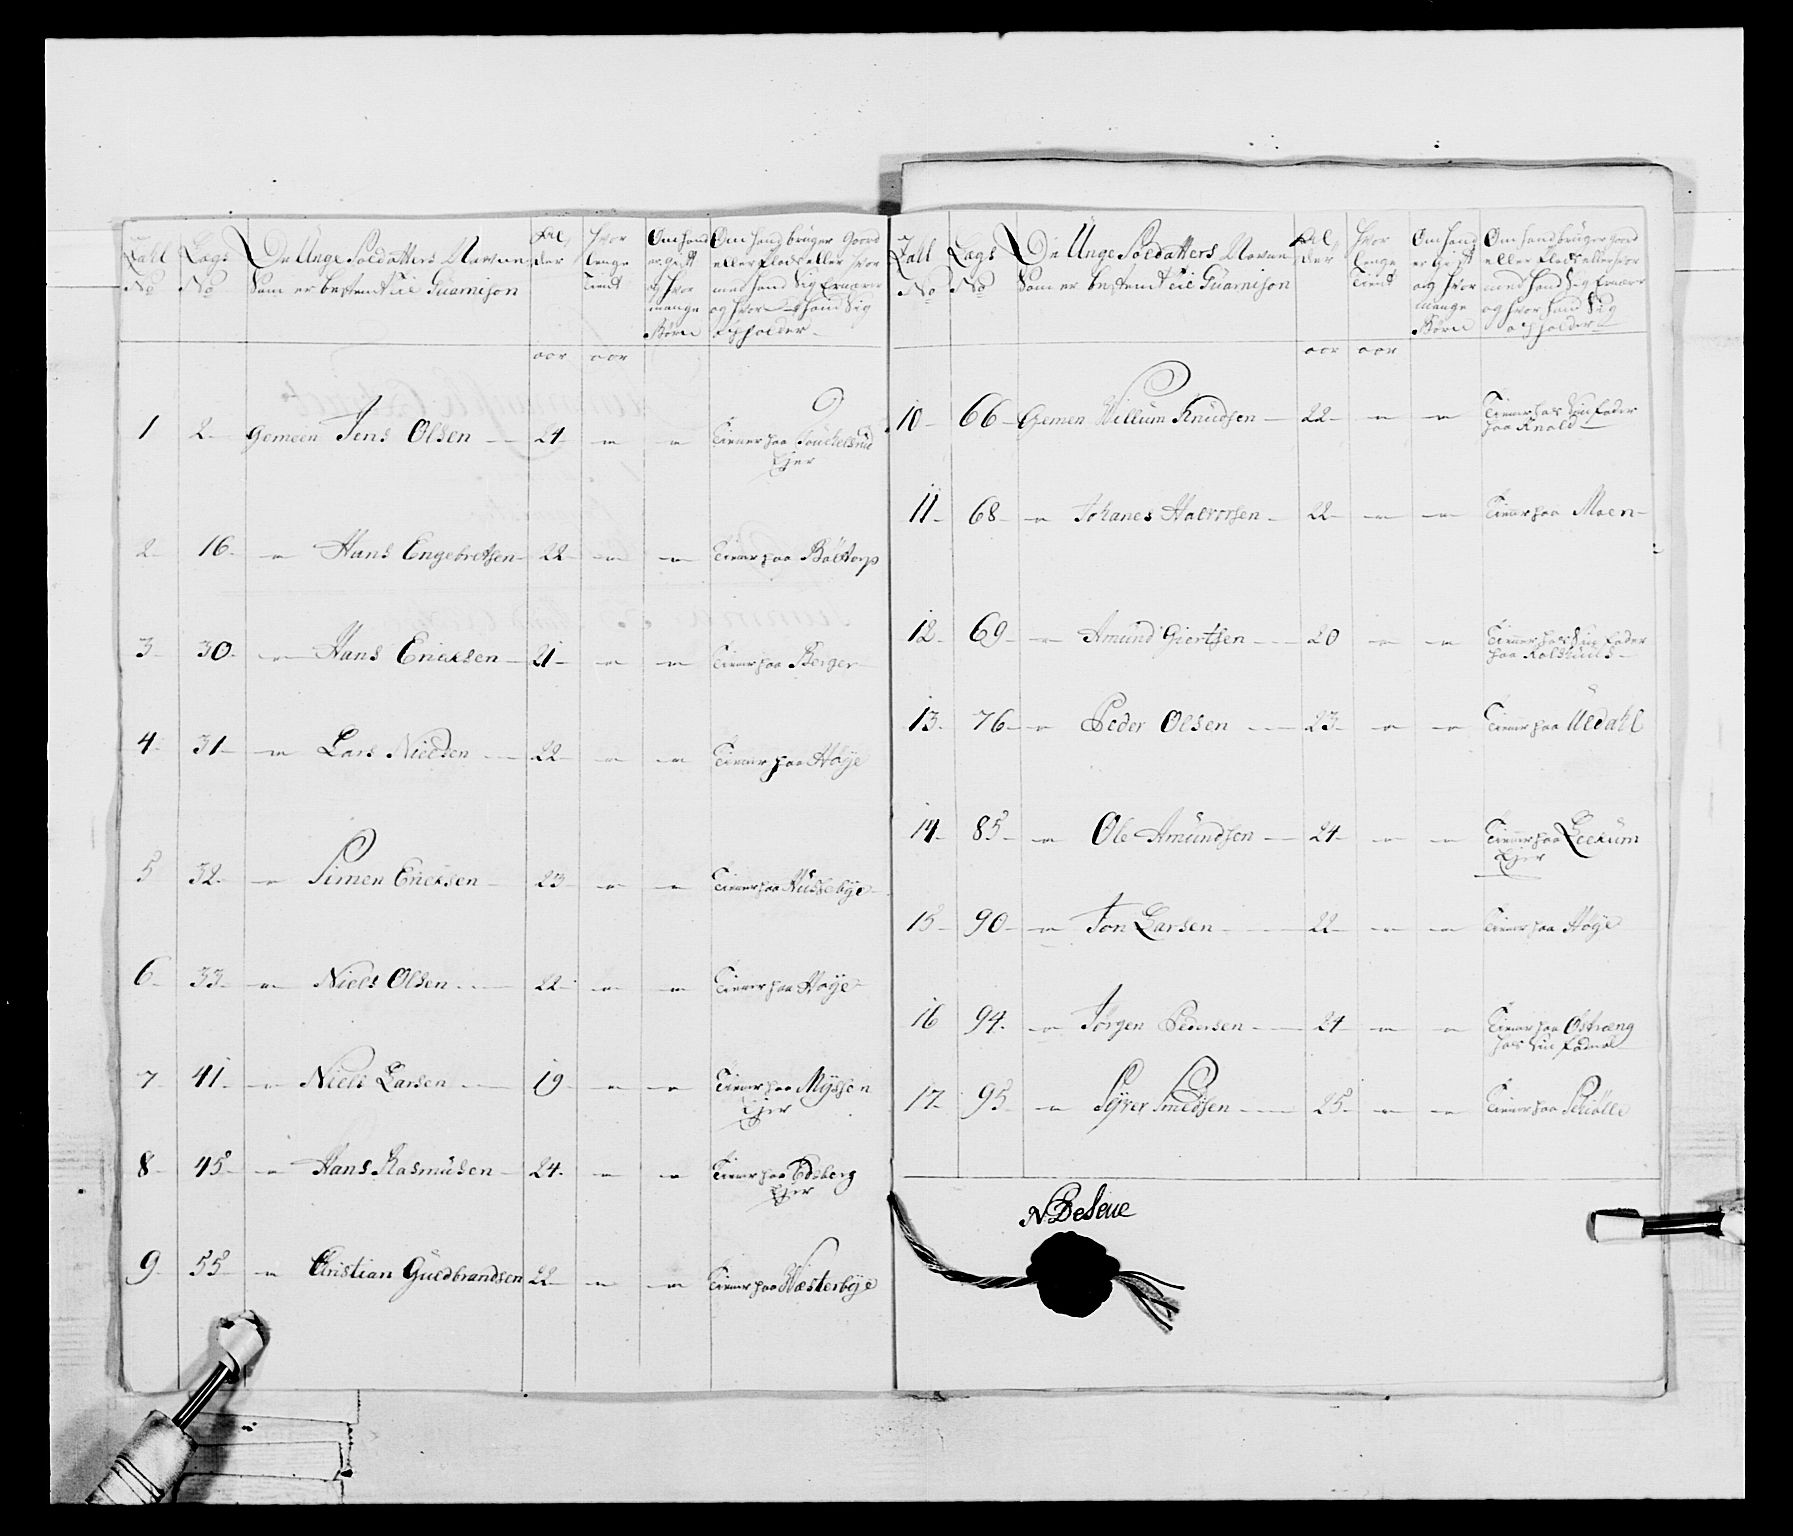 Tall No
Lægs No
De Unge Soldatters Navne
Som er bestemt til Guarnison
Al,
der
Hvor
lenge
tient
Om hand
er gift
og hvor
mange
Børn
Om hand bruger Goord
eller Plads eller hvor
med hand Sig Ernærer
og hvor hand Sig
opholder
aar aar
1 2 Gemeen Jens Olsen 24 " " Tiener paa Touchelsrud
Ejer
2 16 " Hans Engebretsen 22 " " Tiener paa Böltorp
3 30 " Hans Ericksen 21 " " Tiener paa Berger
4 31 " Lars Nielsen 22 " " Tiener paa Høye
5 32 " Simen Ericksen 23 " " Tiener paa Hussebye
6 33 " Niels Olsen 22 " " Tiener paa Høye
7 41 " Niels Larsen 19 " " Tiener paa Myssen
Ejer
8 45 " Hans Rasmusen 24 " " Tiener paa Edsberg
Ejer
9 55 " Christian Guldbrandsen 22 " " Tiener paa Westerbye
Tall No
Lægs No
De Unge Soldatters Navne
Som er bestemt til Guarnison
Al,
der
Hvor
lenge
tient
Om hand
er gift
og hvor
mange
Børn
Om hand bruger Goord
eller Plads eller hvor
med hand Sig Ernærer
og hvor hand Sig
opholder
aar aar
10 66 Gemen Willum Knudsen 22 " " Tiener hos Sin Fader
paa Knold
11 68 " Johanes Halvorsen 22 " " Tiener paa Moen
12 69 " Amund Giertsen 20 " " Tiener hos Sin Fader
paa
13 76 " Peder Olsen 23 " " Tiener paa Uldahl
14 85 " Ole Amundsen 24 " " Tiener paa Leekum
Ejer
15 90 " Jon Larsen 22 " " Tiener paa Høye
16 94 " Jørgen Pedersen 24 " " Tiener paa Østræng
hos Sin
17 95 " Syver Smedsen 25 " " Tiener paa Schiølle
N De Seue